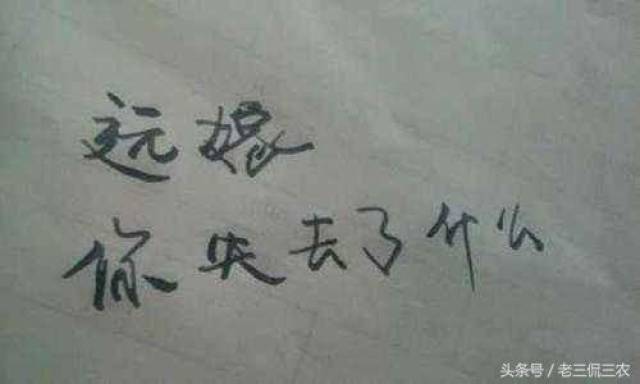 远嫁
你失去了什么
头条号/老三侃三农